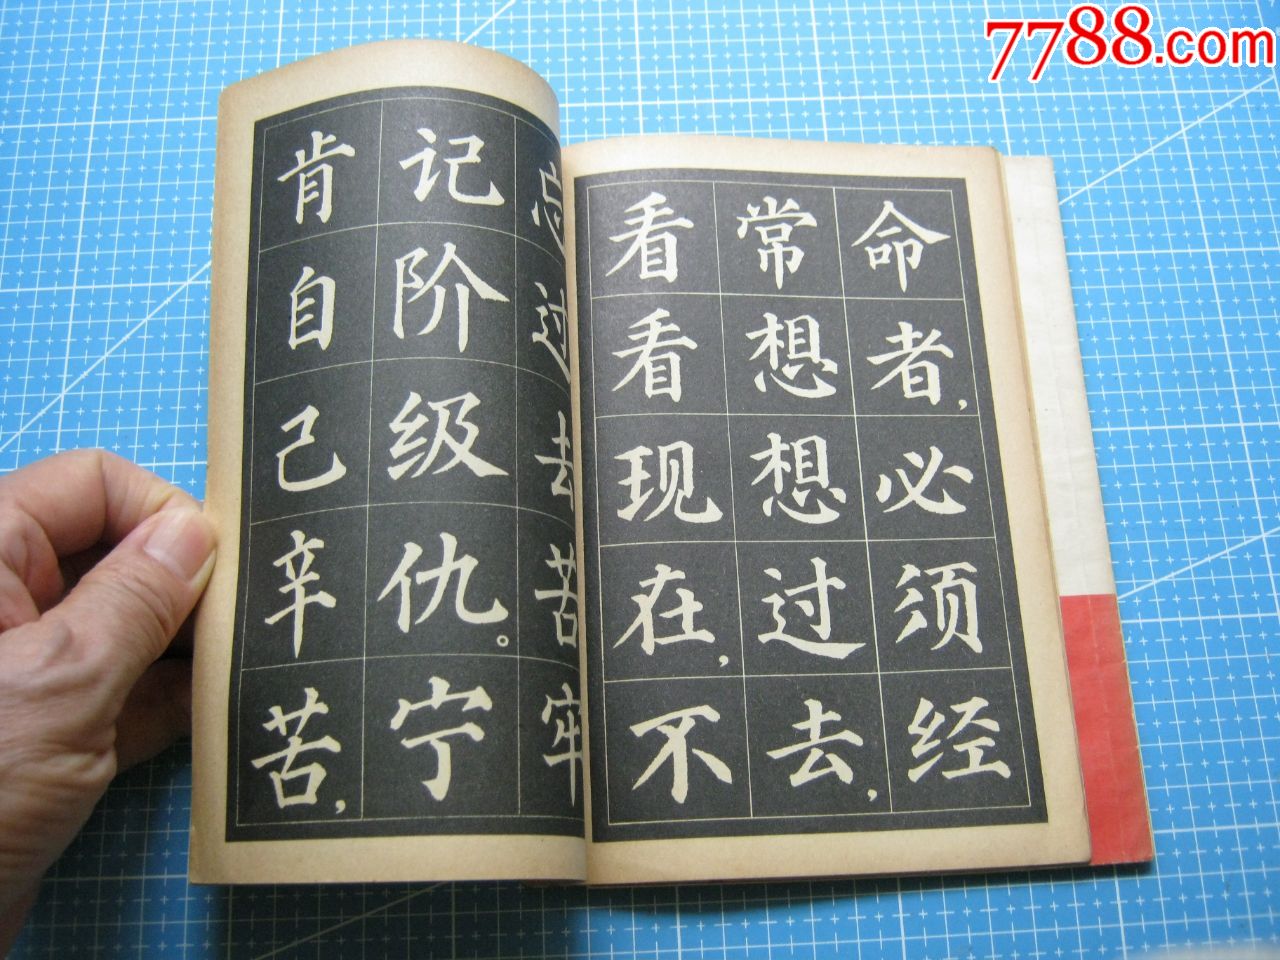 7788.com
命者,必须经
常想想过去,
看看现在,不
忘过去苦牢
记阶级仇。宁
肯自己辛苦,